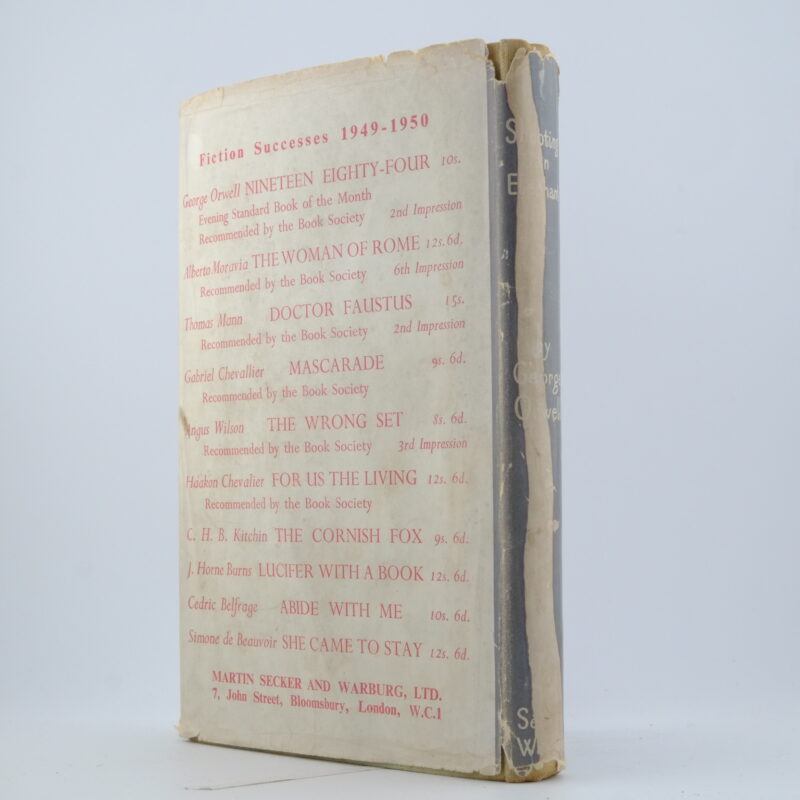 Fiction Successes 1949-1950
George Orwell NINETEEN EIGHTY-FOUR 10s.
Evening Standard Book of the Month
Recommended by the Book Society 2nd Impression
Alberto Moravia THE WOMAN OF ROME 12s.6d.
Recommended by the Book Society 6th Impression
Thomas Mann DOCTOR FAUSTUS 15s.
Recommended by the Book Society 2nd Impression
Gabriel Chevallier MASCARADE 9s. 6d.
Recommended by the Book Society
Angus Wilson THE WRONG SET 8s. 6d.
Recommended by the Book Society 3rd Impression
Haakon Chevalier FOR US THE LIVING 12s. 6d.
Recommended by the Book Society
C. H. B. Kitchin THE CORNISH FOX 9s. 6d.
J. Horne Burns LUCIFER WITH A BOOK 12s. 6d.
Cedric Belfrage ABIDE WITH ME 10s. 6d.
Simone de Beauvoir SHE CAME TO STAY 12s. 6d.
MARTIN SECKER AND WARBURG, LTD.
7, John Street, Bloomsbury, London, W.C.1
Shooting
an
Elephant
by
George
Orwell